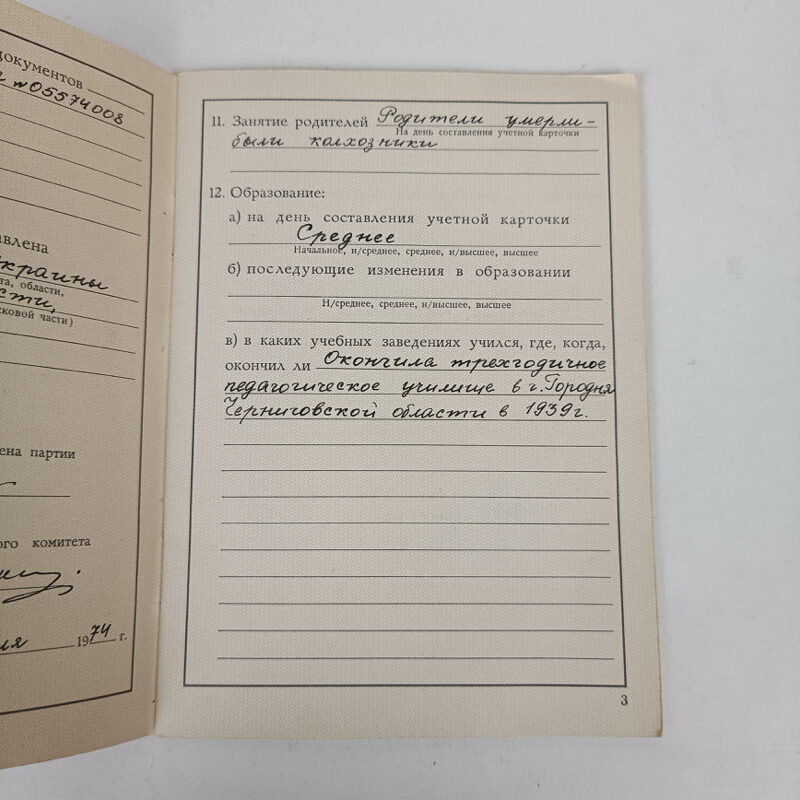 документов
№ 05574008
авлена
краины
та, области,
сти,
сковой части)
ена партии
ого комитета
1974 г.
11. Занятие родителей Родители умерли -
На день составления учетной карточки
были колхозники
12. Образование:
а) на день составления учетной карточки
Среднее
Начальное, н/среднее, среднее, н/высшее, высшее
б) последующие изменения в образовании
Н/среднее, среднее, н/высшее, высшее
в) в каких учебных заведениях учился, где, когда,
окончил ли Окончила трехгодичное
педагогическое училище в г. Городня
Черниговской области в 1939 г.
3